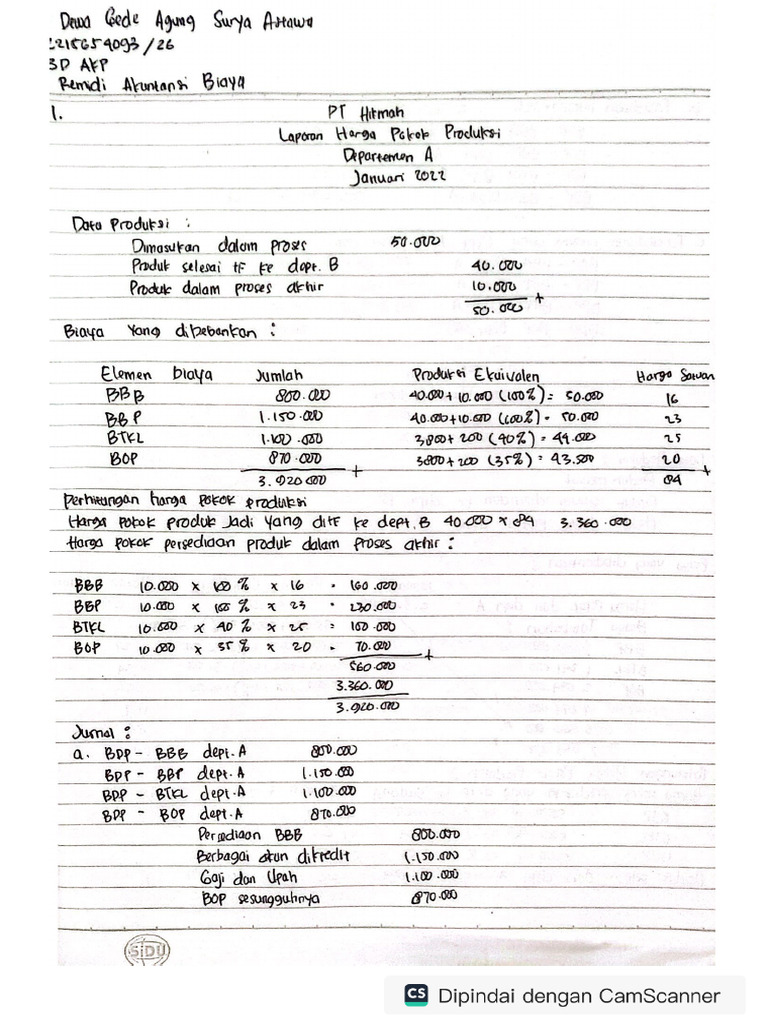 Dewa Gede Agung Surya Artawa
2215654093/26
3D AKP
Remidi Akuntansi Biaya
1. PT Hikmah
Laporan Harga Pokok Produksi
Departemen A
Januari 2022
Data Produksi :
Dimasukan dalam proses 50.000
Produk selesai tf ke dept. B 40.000
Produk dalam proses akhir 10.000 +
50.000
Biaya yang dibebankan :
Elemen biaya Jumlah Produksi Ekuivalen Harga Satuan
BBB 800.000 40.000 + 10.000 (100%) = 50.000 16
BBP 1.150.000 40.000 + 10.000 (100%) = 50.000 23
BTKL 1.100.000 3800 + 200 (40%) = 44.000 25
BOP 870.000 3800 + 200 (35%) = 43.500 20 +
3.920.000 + 84
Perhitungan harga pokok produksi
Harga pokok produk jadi yang di tf ke dept. B 40.000 x 84 3.360.000
Harga pokok persediaan produk dalam proses akhir :
BBB 10.000 x 100 % x 16 = 160.000
BBP 10.000 x 100 % x 23 = 230.000
BTKL 10.000 x 40 % x 25 = 100.000
BOP 10.000 x 35 % x 20 = 70.000 +
560.000
3.360.000
3.920.000
Jurnal :
a. BDP - BBB dept. A 800.000
BDP - BBP dept. A 1.150.000
BDP - BTKL dept. A 1.100.000
BDP - BOP dept. A 870.000
Persediaan BBB 800.000
Berbagai akun dikredit 1.150.000
Gaji dan Upah 1.100.000
BOP sesungguhnya 870.000
SiDU
CS Dipindai dengan CamScanner